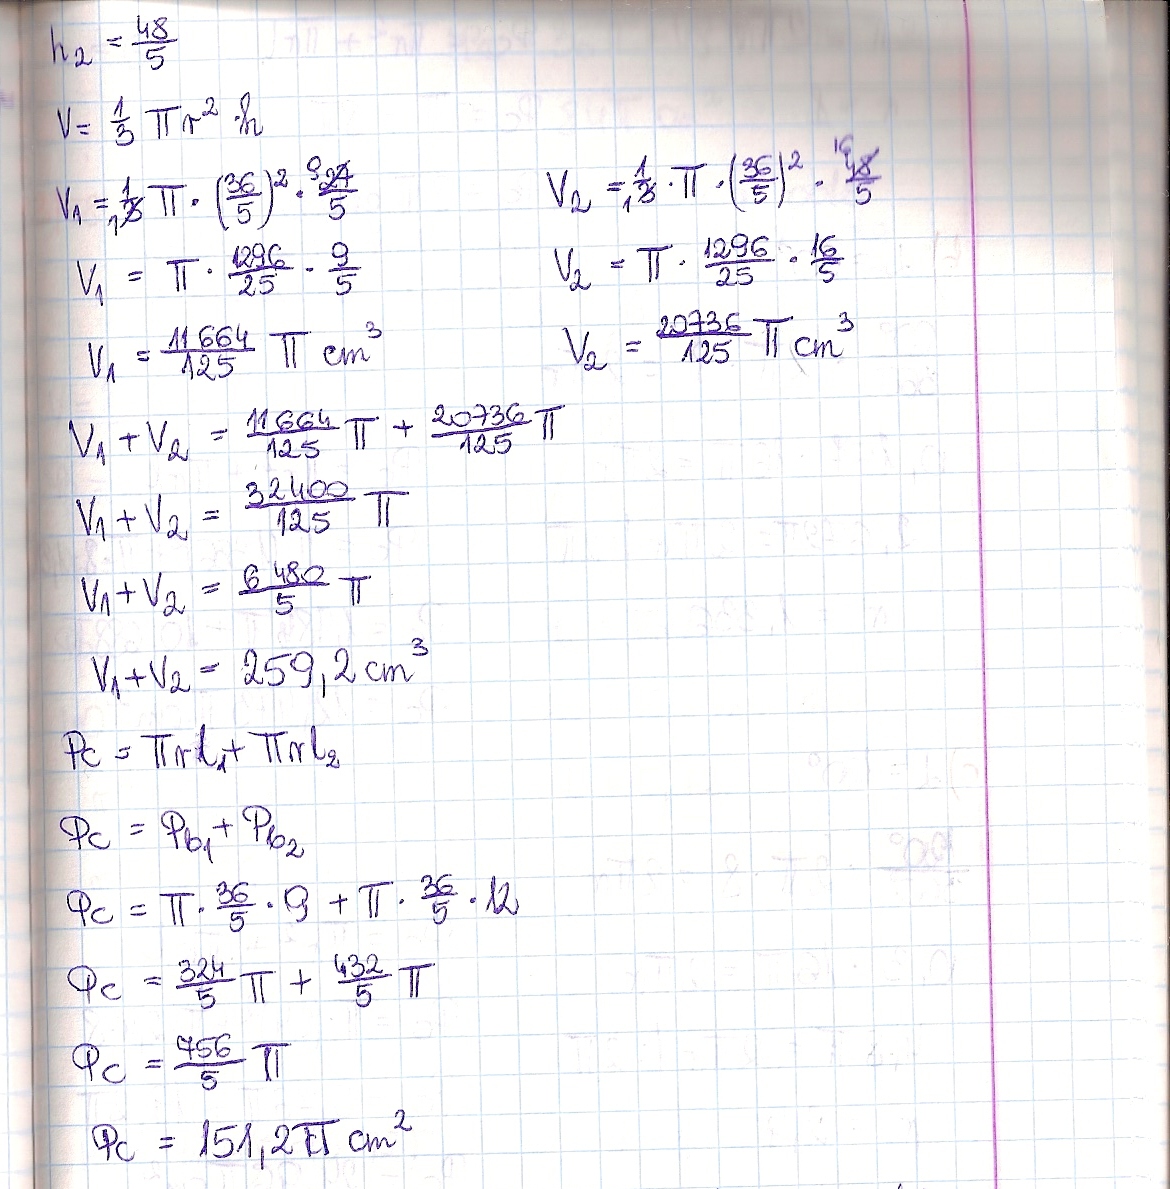 h₂ = 48/5
V = 1/3 π r² · h
V₁ = 1/3 π · (36/5)² · 27/5 V₂ = 1/3 · π · (36/5)² · 48/5
V₁ = π · 1296/25 · 9/5 V₂ = π · 1296/25 · 16/5
V₁ = 11664/125 π cm³ V₂ = 20736/125 π cm³
V₁ + V₂ = 11664/125 π + 20736/125 π
V₁ + V₂ = 32400/125 π
V₁ + V₂ = 6480/5 π
V₁ + V₂ = 259,2 cm³
Pc = πrl₁ + πrl₂
Pc = Pb₁ + Pb₂
Pc = π · 36/5 · 9 + π · 36/5 · 12
Pc = 324/5 π + 432/5 π
Pc = 756/5 π
Pc = 151,2 π cm²